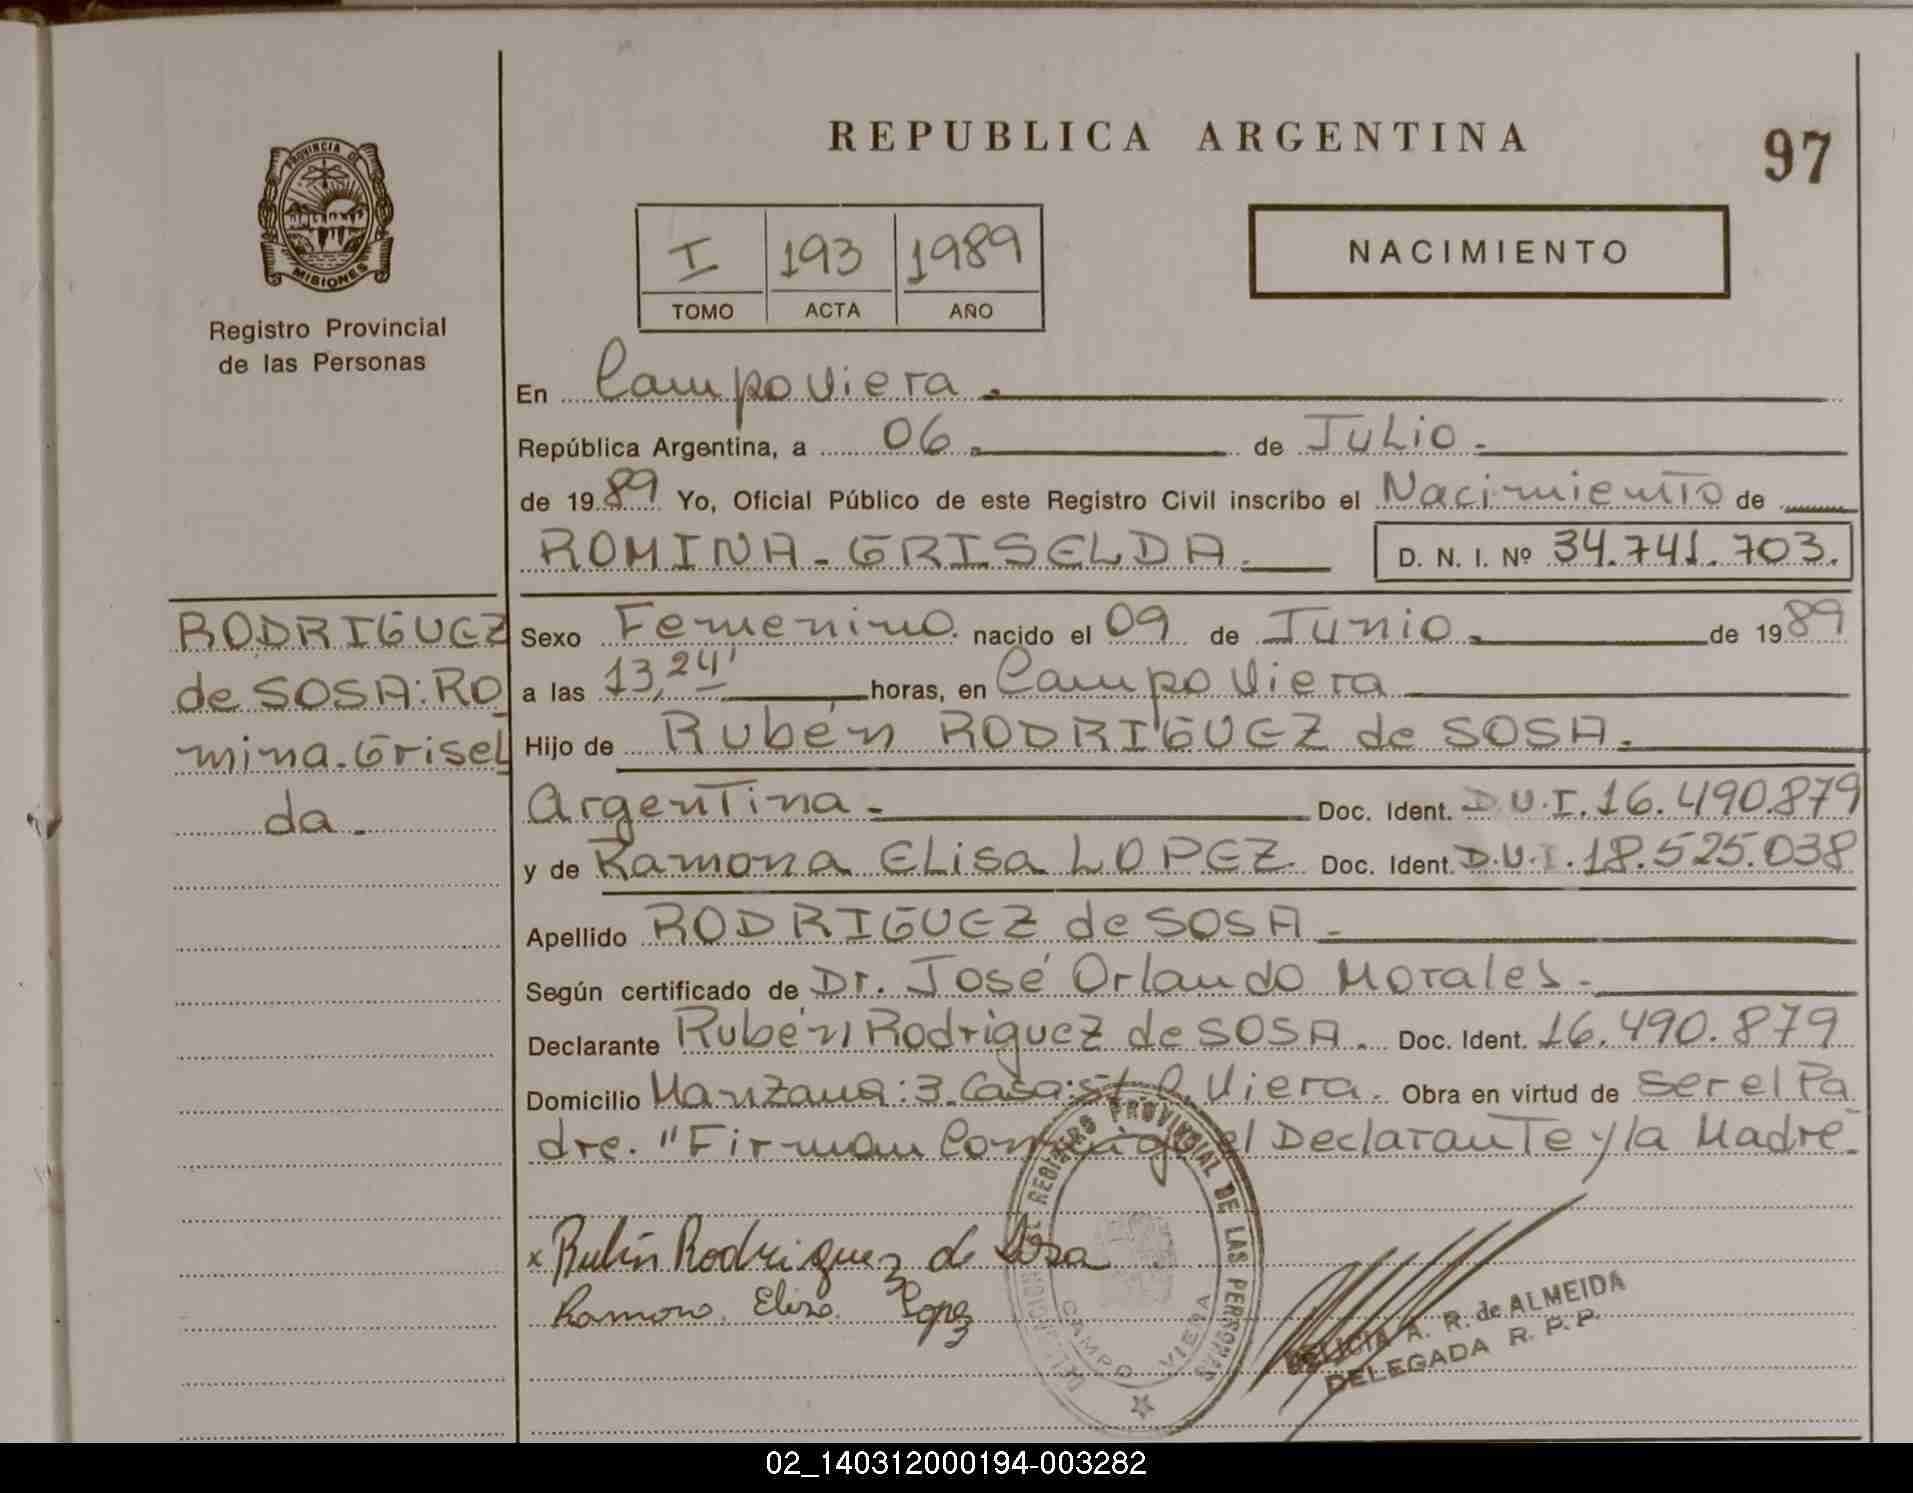 REPUBLICA ARGENTINA
97
PROVINCIA DE
MISIONES
Registro Provincial
de las Personas
I 193 1989
TOMO ACTA AÑO
NACIMIENTO
En Campo Viera.
República Argentina, a 06. de JULIO.
de 1989 Yo, Oficial Público de este Registro Civil inscribo el Nacimiento de
ROMINA-GRISELDA. D. N. I. Nº 34.741.703.
RODRIGUEZ
de SOSA: RO
mina. Grisel
da.
Sexo Femenino. nacido el 09 de Junio. de 1989
a las 13,24' horas, en Campo Viera
Hijo de Rubén RODRIGUEZ de SOSA.
Argentina. Doc. Ident. D.U.I. 16.490.879
y de Ramona ELisa LOPEZ. Doc. Ident. D.U.I. 18.525.038
Apellido RODRIGUEZ de SOSA.
Según certificado de Dr. José Orlando Morales.
Declarante Rubén Rodriguez de SOSA. Doc. Ident. 16.490.879
Domicilio Manzana: 3. Casa: Viera. Obra en virtud de ser el Pa
dre. "Firman Conmigo el Declarante y la Madre.
x Rubén Rodriguez de Sosa
Ramona Elisa Lopez
REGISTRO PROVINCIAL DE LAS PERSONAS
CAMPO VIERA
DELICIA A. R. de ALMEIDA
DELEGADA R. P. P.
02_140312000194-003282